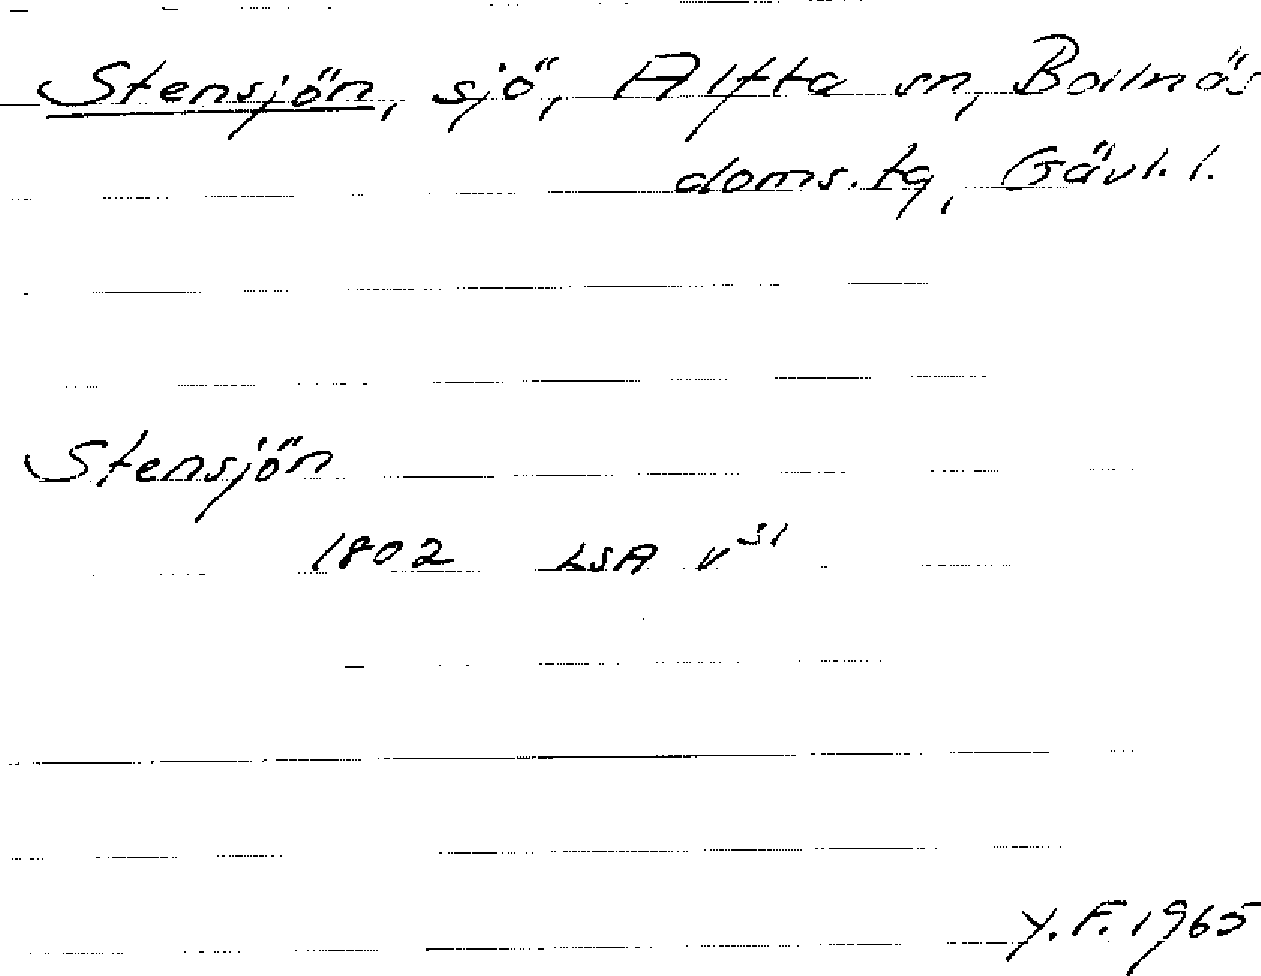 Stensjön, sjö, Alfta sn, Bollnäs
doms.tg, Gävl. l.
Stensjön
1802 LSA V 51
Y.F. 1965